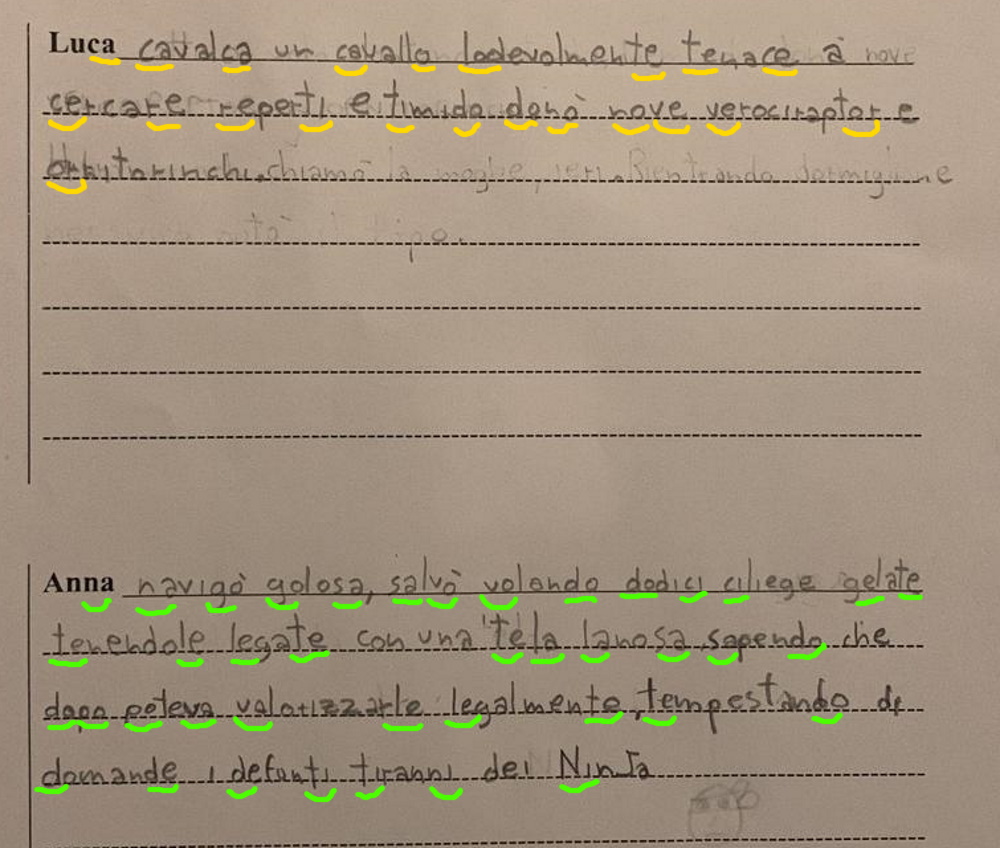 Luca cavalca un cavallo lodevolmente tenace a nove
cercare reperti e timido donò nove verociraptor e
ornitorinchi. chiamò la moglie, ieri. Rientrando
notò il tipo.
Anna navigò golosa, salvò volando dodici ciliege gelate
tenendole legate con una tela lanosa sapendo che
dopo poteva valorizzarle legalmente, tempestando di
domande i defunti tiranni dei Ninja